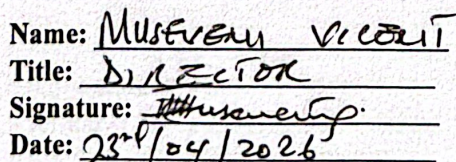 Name: MUSEVENI VICENT
Title: DIRECTOR
Signature:
Date: 23rd/04/2026